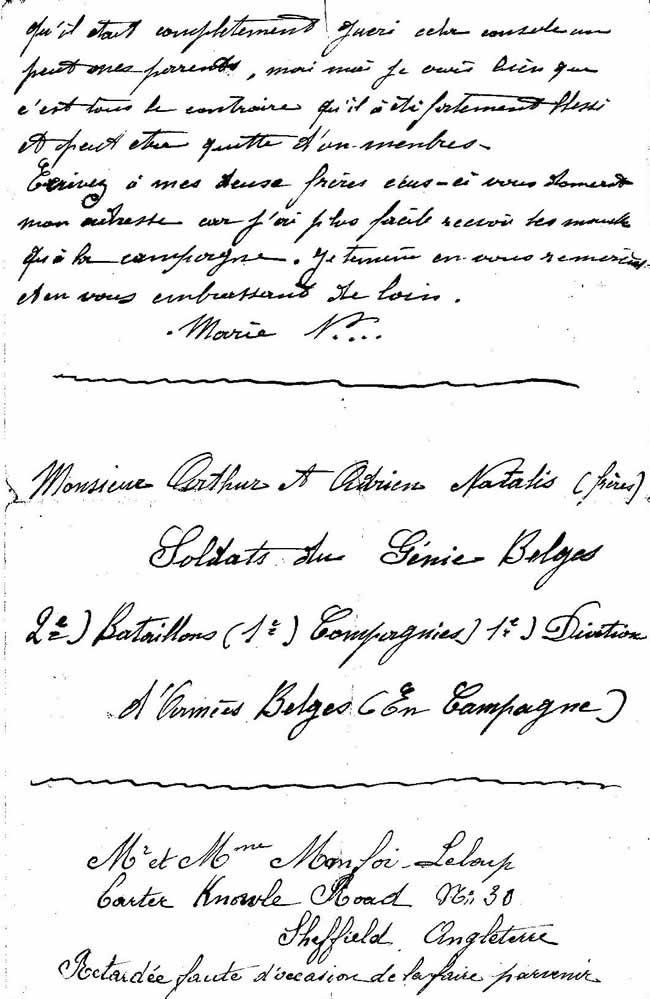 qu'il etait completement gueri cela console un
peut mes parrents, mai moi je vois bien que
c'est tous le contraire qu'il à été fortement blessé
et peut etre quitte d'un membres-
Ecrivez à mes deuse frères ceus-ci vous donneront
mon adresse car j'ai plus facile recevoir les
qu'à la campagne. Je termine en vous remerciant
et en vous embrassant de loin.
Marie N....
Monsieur Arthur et Adrien Natalis (frères)
Soldats du Génie Belges
2e) Bataillons (1e) Compagnies) 1e) Division
d'Armées Belges (En Campagne)
Mr et Mme Monfoi-Leloup
Carter Knowle Road No: 30
Sheffield Angleterre
Retardée faute d'occasion de la faire parvenir